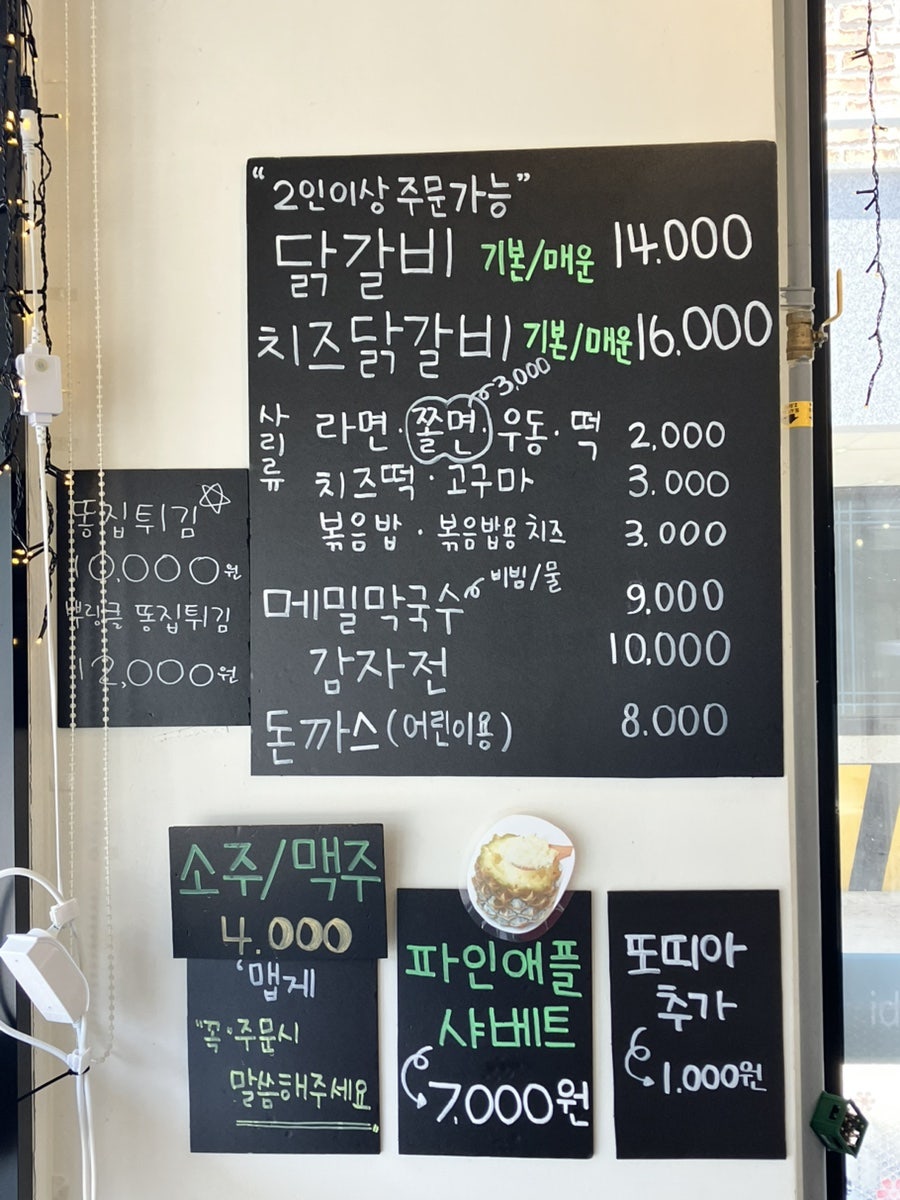 “2인이상 주문가능”
닭갈비 기본/매운 14.000
치즈닭갈비 기본/매운 16.000
3.000
사리류 라면·쫄면·우동·떡 2,000
치즈떡·고구마 3.000
볶음밥·볶음밥용 치즈 3.000
메밀막국수 비빔/물 9,000
감자전 10,000
돈까스(어린이용) 8.000
똥집튀김
10,000원
뿌링클 똥집튀김
12,000원
소주/맥주
4.000
‘맵게
“꼭” 주문시
말씀해주세요
파인애플
샤베트
7,000원
또띠아
추가
1.000원